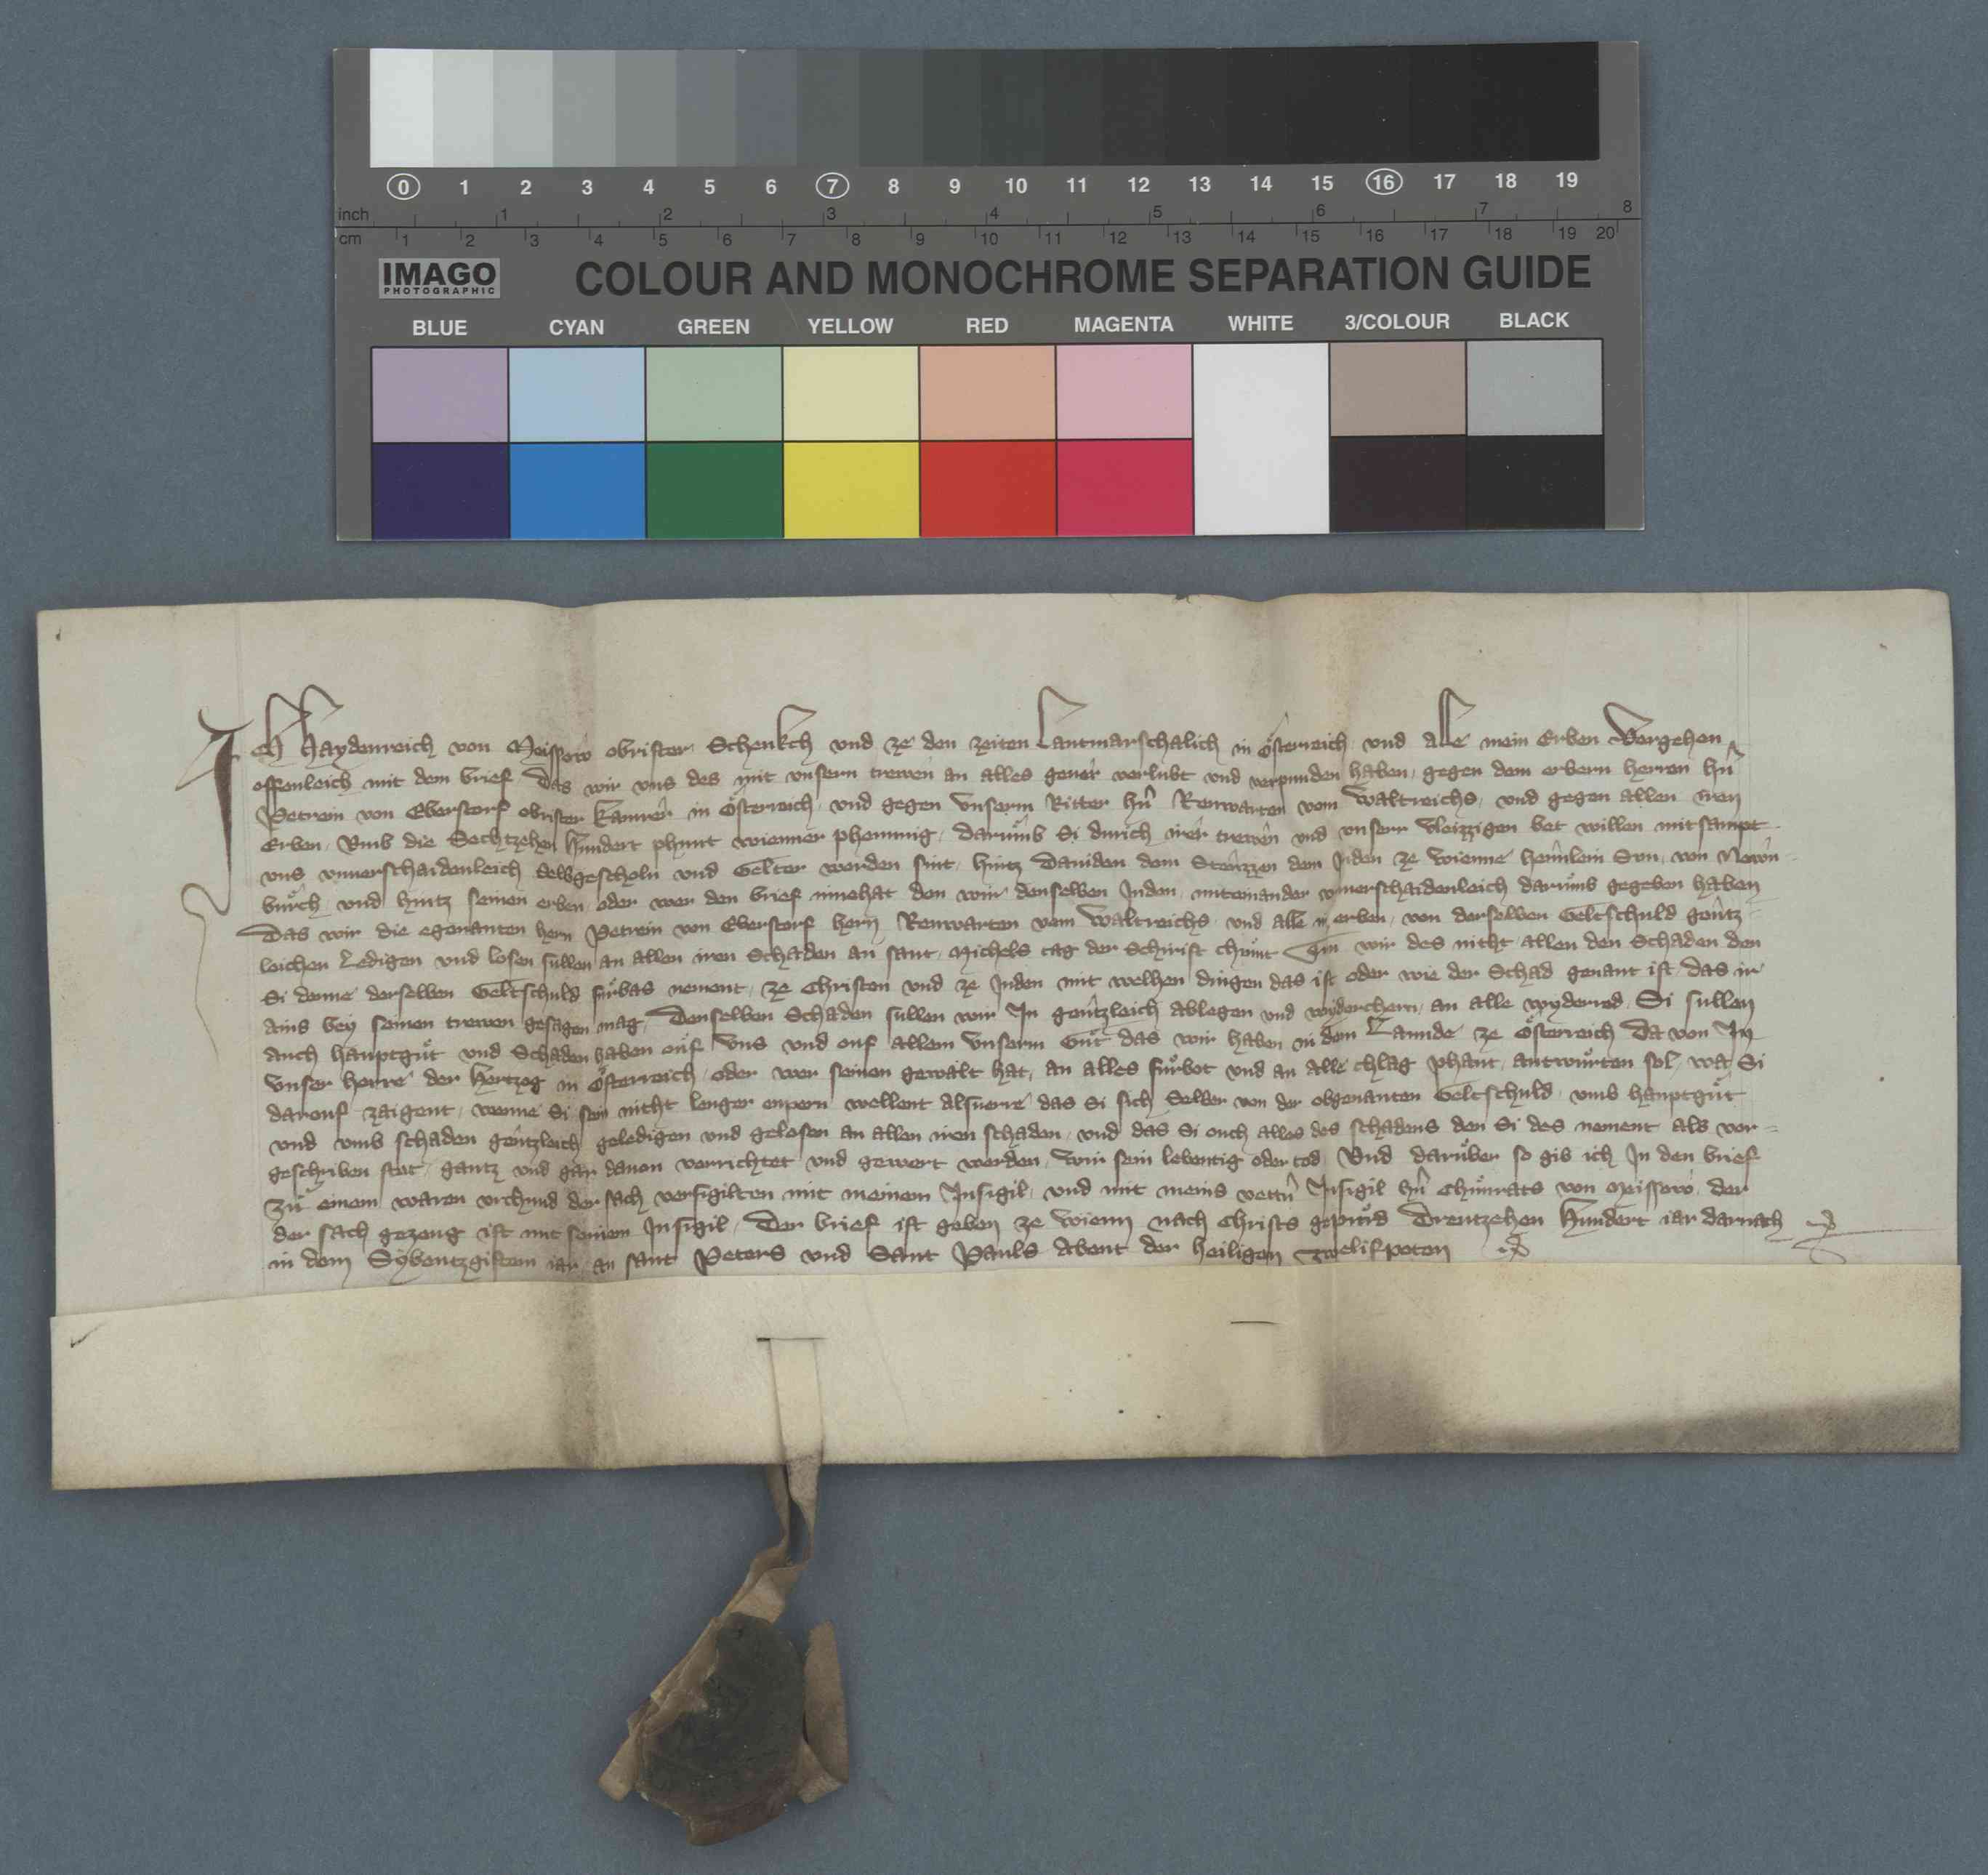 0 1 2 3 4 5 6 7 8 9 10 11 12 13 14 15 16 17 18 19
inch 1 2 3 4 5 6 7 8
cm 1 2 3 4 5 6 7 8 9 10 11 12 13 14 15 16 17 18 19 20
IMAGO PHOTOGRAPHIC COLOUR AND MONOCHROME SEPARATION GUIDE
BLUE CYAN GREEN YELLOW RED MAGENTA WHITE 3/COLOUR BLACK
Ich Haydenreich von Meissow obrister Schenkch vnd ze den zeiten Lantmarschalich in Österreich vnd alle mein Erben Vergehen
offenleich mit dem brief Das wir vns des mit vnsern trewen an alles geuer verlubt vnd verpunden haben gegen dem erbern herren hn
Petrein von Eberstorf obrister kamrer in Österreich vnd gegen vnserm Ritter hn Renwarten vom Waltreichs vnd gegen allen iren
Erben Vmb die Sechtzehen Hundert phunt wienner phenning darumb Si durich irer trewen vnd vnserr vleizzigen bet willen mitsampt
vns vnuerschaidenleich selbgescholn vnd Gelter worden sint hintz Dauiden dem Steuzzen dem Juden ze Wienne hennlein Sun von Newn-
burch vnd hintz seinen erben oder wer den brief innehat den wir denselben Juden miteinander vnuerschaidenleich darumb gegeben haben
Das wir die egenanten hern Petrein von Eberstorf hern Renwarten vom Waltreichs vnd alle ir erben von derselben Geltschuld gentz-
leichen Ledigen vnd losen sullen an allen iren Schaden an sant Michels tag der schirist chumt Tun wir des nicht allen den Schaden den
Si denne derselben Geltschuld furbas nement ze Christen vnd ze Juden mit welhen dingen das ist oder wie der Schad genant ist das ir
ains bey seinen trewen gesagen mag Denselben Schaden sullen wir In gentzleich ablegen vnd widercheren an alle wyderred Si sullen
auch hauptgut vnd Schaden haben ouf vns vnd ouf allem vnserm Gut das wir haben in dem Lannde ze Österreich Da von In
vnser herre der Hertzog in Österreich oder wer seinen gewalt hat an alles furbot vnd an alle chlag phant antwurten sol wa Si
darouf zaigent wenne Si sein nicht lenger enpern wellent alsuerre das Si sich selber von der obgenanten Geltschuld vmb hauptgut
vnd vmb schaden gentzleich geledigen vnd gelosen an allen iren schaden vnd das Si ouch alles des schadens den Si des nement als vor-
geschriben stet gantz vnd gar dauon verrichtet vnd gewert werden wir sein lebentig oder tod Vnd daruber so gib ich In den brief
zu einem waren vrchund der sach versigilten mit meinem Insigil vnd mit meins vettern Insigil hn Chunrats von Meissow der
der sach gezeug ist mit seinem Insigil Der brief ist geben ze Wienn nach Christs gepurd Dreutzehen Hundert iar darnach
in dem Sybentzgistem iar an sant Peters vnd Sant Pauls abent der heiligen zwelifpoten